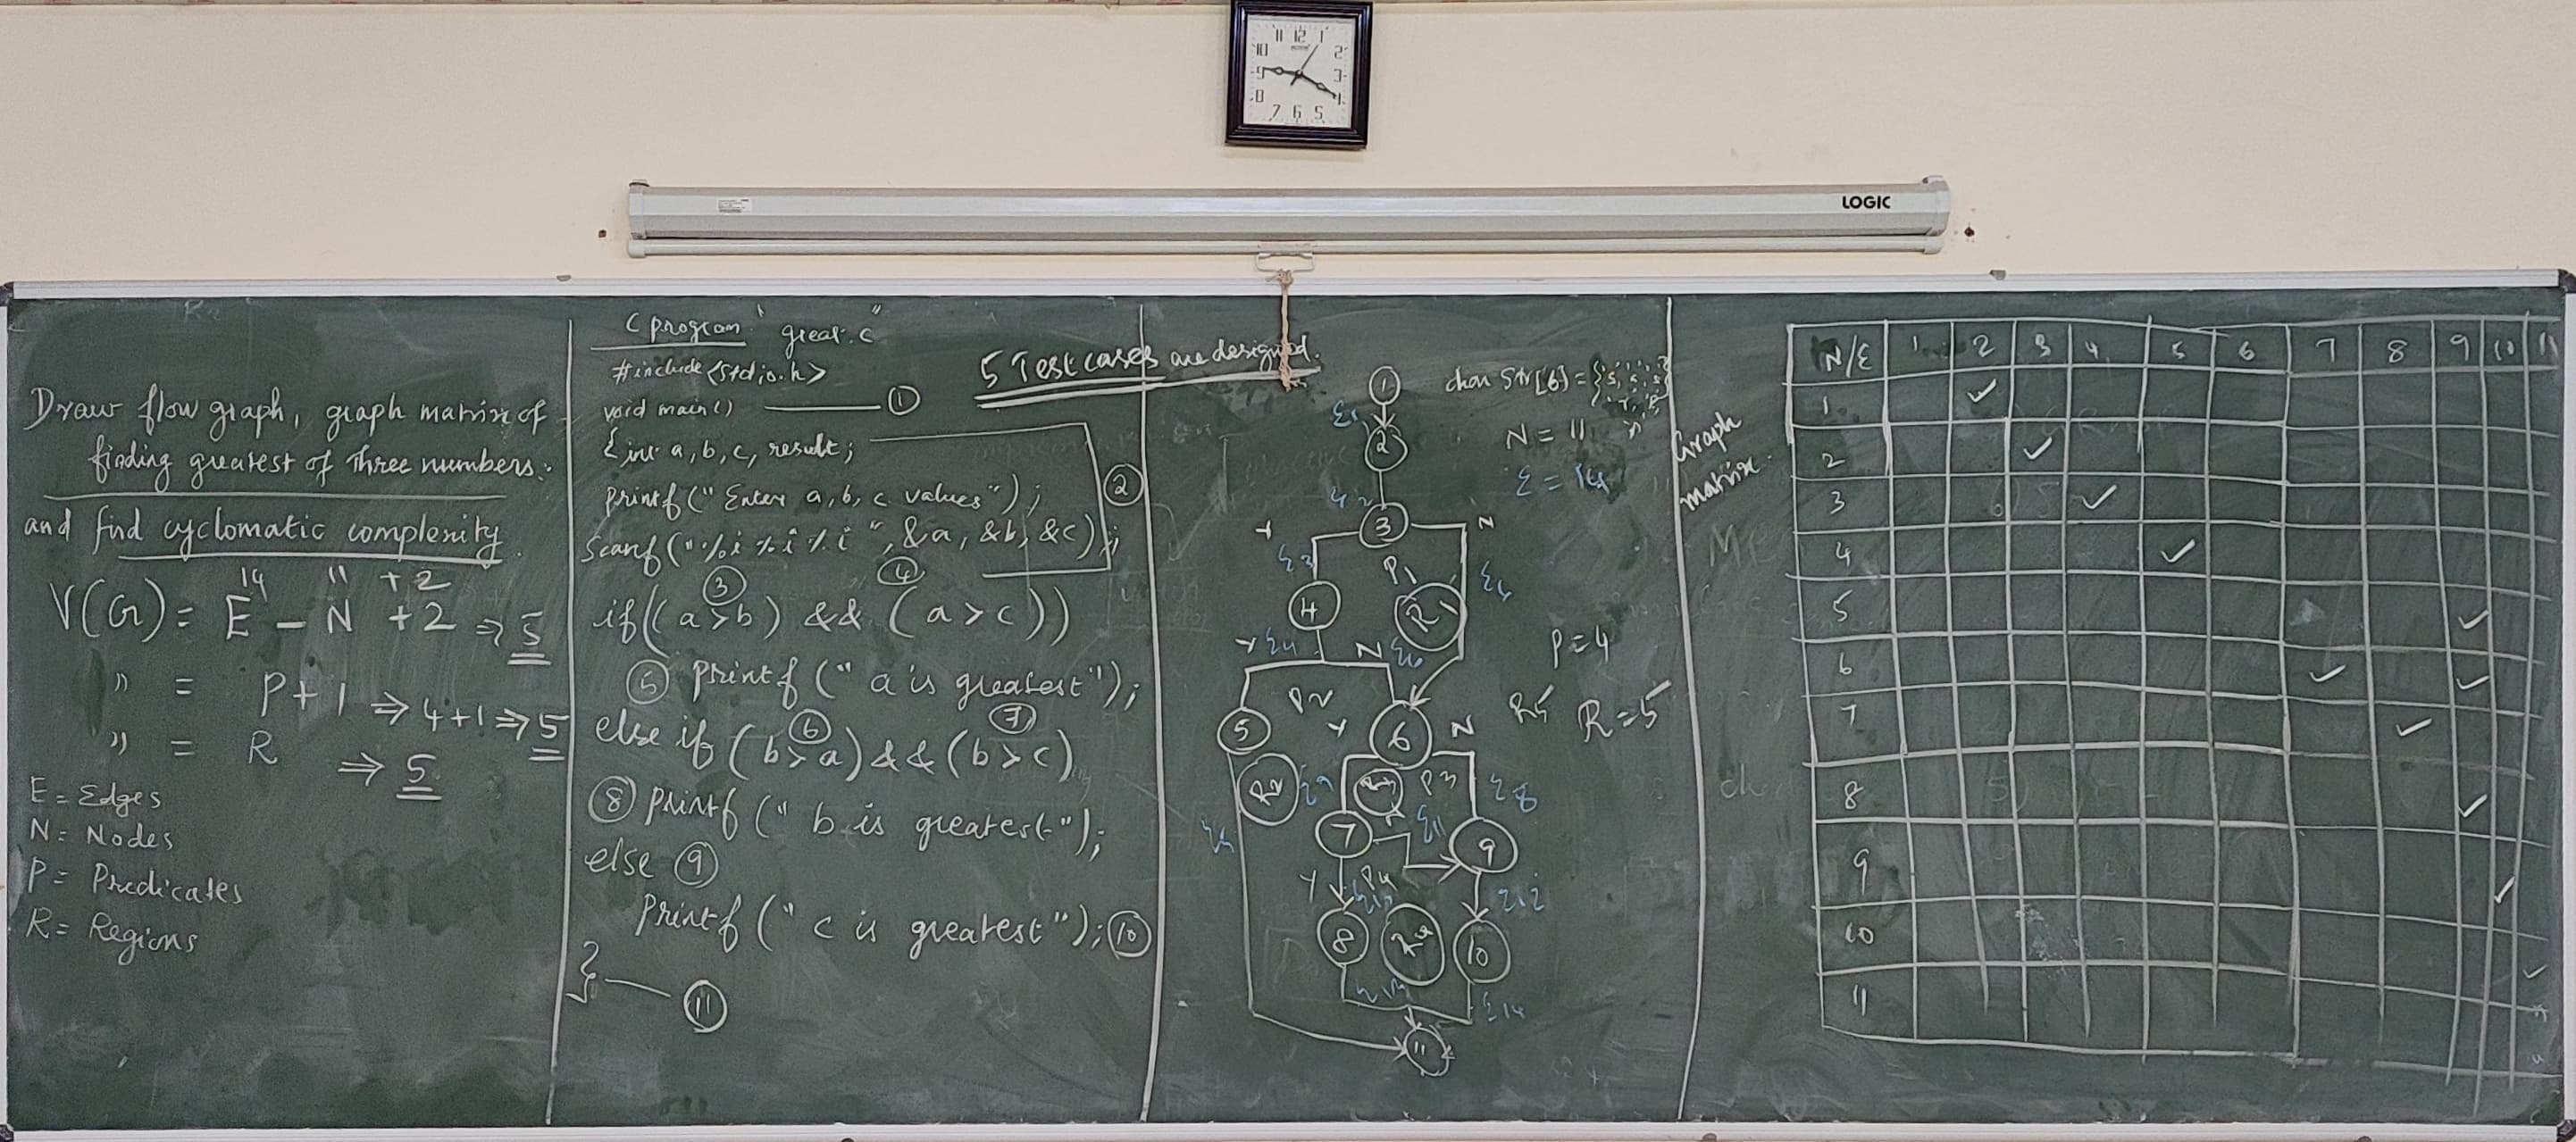 11 12 1
10 2
9 3
8 4
7 6 5
LOGIC
Draw flow graph, graph matrix of
finding greatest of three numbers:
and find cyclomatic complexity.
14 11 +2
V(G) = E - N +2 ⇒ 5
" = P+1 ⇒ 4+1 ⇒ 5
" = R ⇒ 5
E = Edges
N = Nodes
P = Predicates
R = Regions
C program "great.c"
#include <stdio.h>
void main() 1
{ int a, b, c, result;
printf(" Enter a, b, c values"); 2
Scanf("%i %i %i ", &a, &b, &c);
3 4
if((a>b) && (a>c))
5 printf(" a is greatest");
6 7
else if (b>a) && (b>c)
8 printf(" b is greatest");
else 9
printf(" c is greatest"); 10
} 11
5 Test cases are designed.
char Str[6] =
N = 11
E = 14
1
E1
2
E2
3
Y N
E3
P1
4
R1
Y E4 N E6
P2
5
Y 6 N
R2 E9 P3 E8
7 E11 9
Y P4 E12
8 10
E13 E14
11
P=4
R5 R=5
Graph
matrix.
N/E 1 2 3 4 5 6 7 8 9 10 11
1 ✓
2 ✓
3 ✓
4 ✓
5 ✓
6 ✓ ✓
7 ✓
8 ✓
9 ✓
10 ✓
11